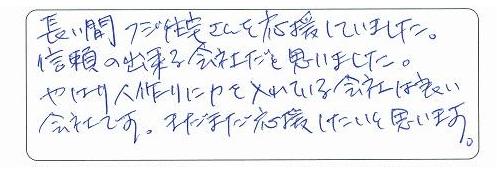 長い間フジ住宅さんを応援していました。
信頼の出来る会社だと思いました。
やはり人作りに力を入れている会社は良い
会社です。まだまだ応援したいと思います。